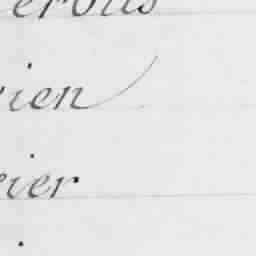 erous
rien
rier